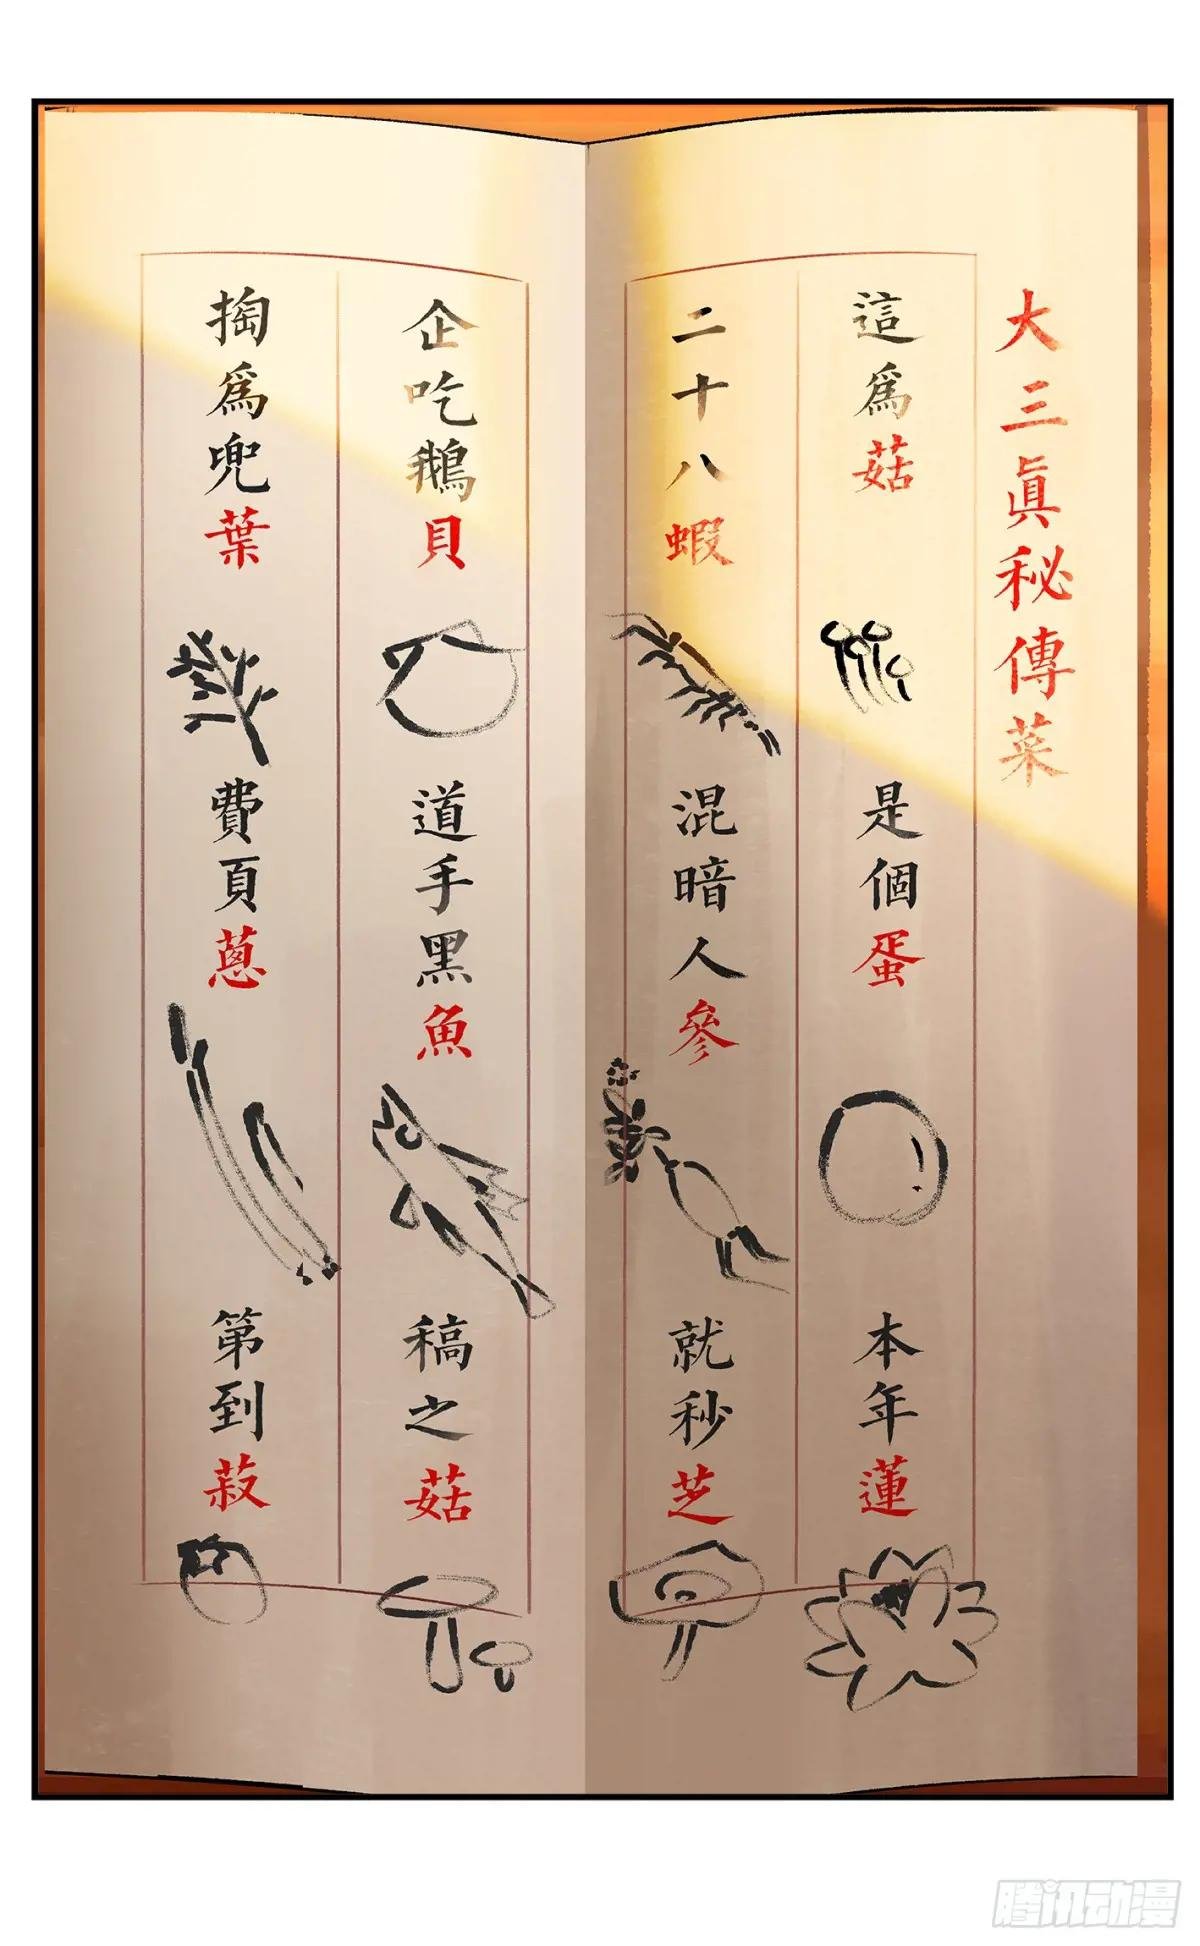 大三眞秘傳菜
這爲菇
是個蛋
本年蓮
二十八蝦
混暗人參
就秒芝
企吃鵝貝
道手黑魚
稿之菇
掏爲兜葉
費頁蔥
第到菽
腾讯动漫